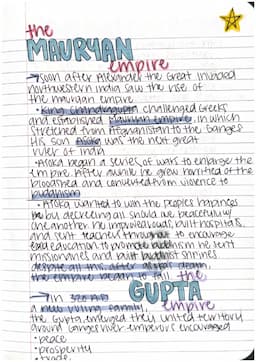 the
MAURYAN
empire
→ soon after Alexander the Great invaded
northwestern India saw the rise of
the mauryan empire
• King Chandragupta challenged Greeks
and established Mauryan empire. in which
stretched from Afghanistan to the Ganges
His son Asoka was the next great
ruler of India
• Asoka began a series of wars to enlarge the
empire. After awhile he grew horrified of the
bloodshed and converted from violence to
buddhism
• Asoka wanted to win the peoples
by decreeing all should live peacefully w/
one another he improved roads, built hospitals,
and sent teachers throughout to encourage
education to promote buddhism he sent
missionaries and built buddhist shrines
despite all this after asokas death,
the empire began to fall
the
GUPTA
empire
→ In 320 A.D
a new ruling family,
the Gupta, emerged they united territory
around Ganges river emperors encouraged
• peace
• prosperity
• trade